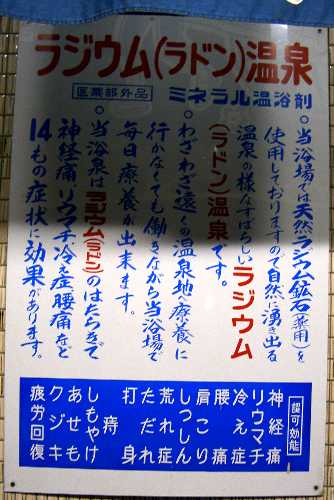 ラジウム(ラドン)温泉
医薬部外品 ミネラル温浴剤
○当浴場では天然ラジウム鉱石(薬用)を
使用しておりますので自然に湧き出る
温泉の様なすばらしいラジウム
(ラドン)温泉です。
○わざわざ遠くの温泉地へ療養に
行かなくても働きながら当浴場で
毎日療養が出来ます。
○当浴泉はラジウム(ラドン)のはたらきで
神経痛、リウマチ、冷え症、腰痛など
14もの症状に効果があります。
認可効能
神経痛
リウマチ
冷え症
腰痛
肩こり
しっしん
荒れ症
ただれ
打身
痔
しもやけ
あせも
クジキ
疲労回復